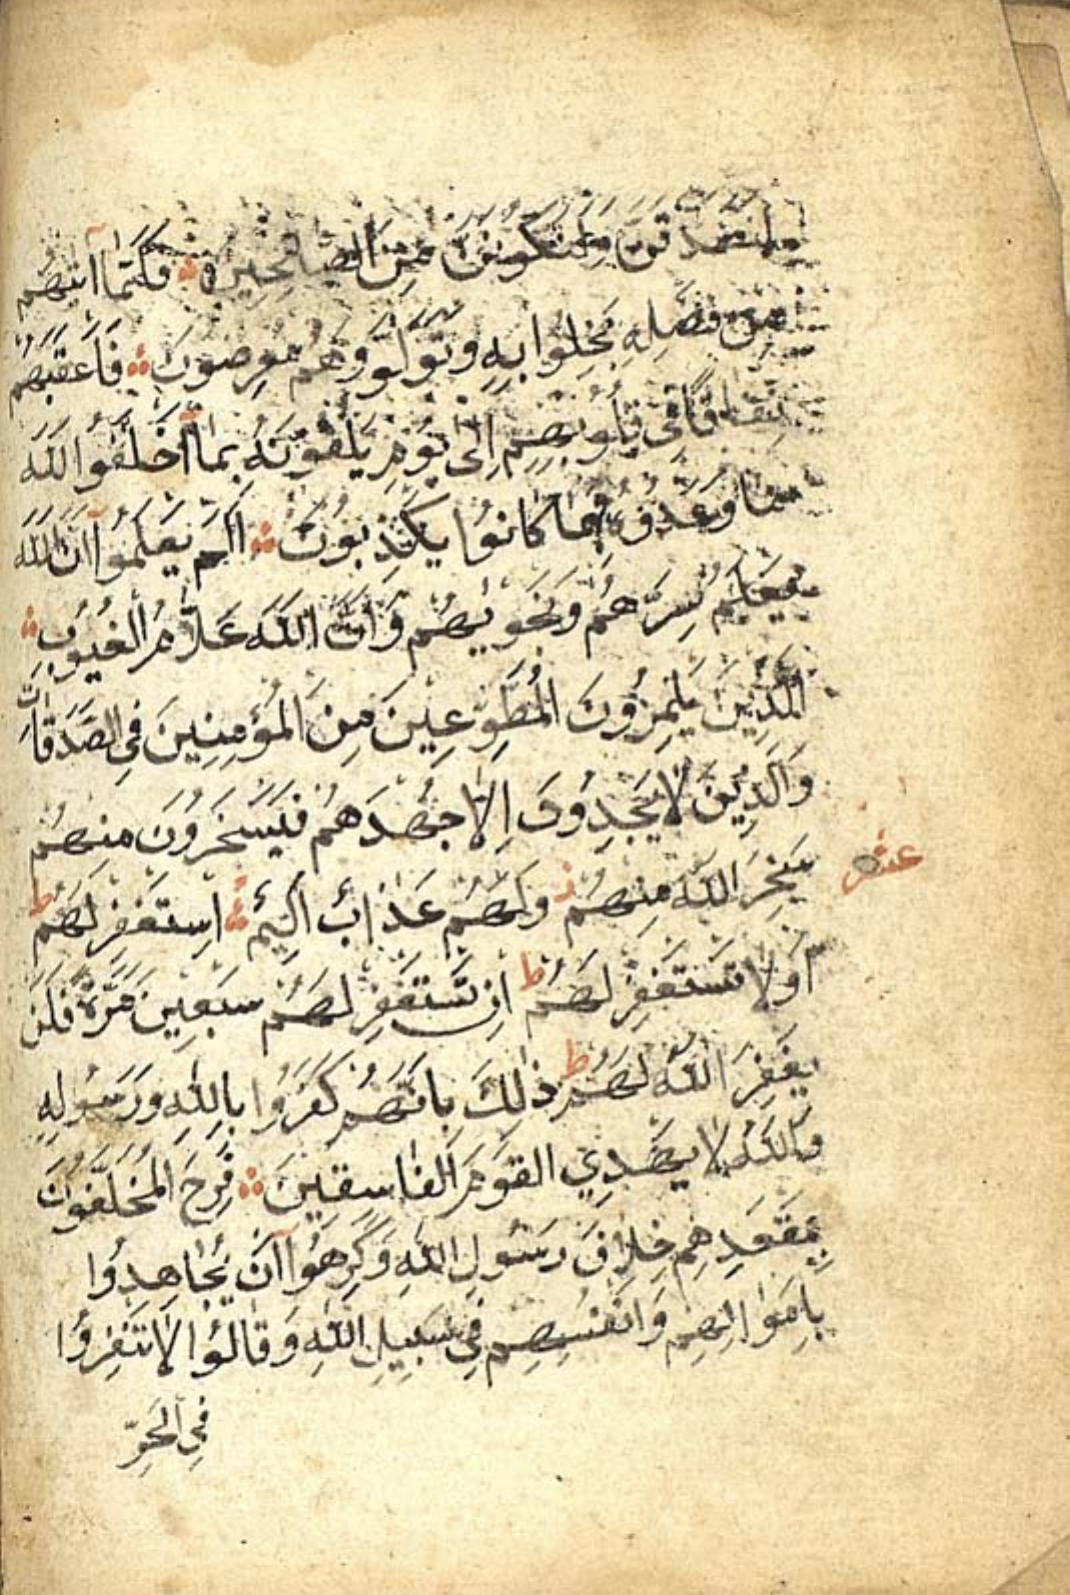 لنصدقن ولنكونن من الصالحين فلما آتيهم
من فضله بخلوا به وتولو وهم معرضون فاعقبهم
نفاقا في قلوبهم الى يوم يلقونه بما اخلفوا الله
ما وعدوه وبما كانوا يكذبون الم يعلموا ان الله
يعلم سرهم ونجويهم وان الله علام الغيوب
الذين يلمزون المطوعين من المؤمنين في الصدقات
والذين لا يجدون الا جهدهم فيسخرون منهم
عشر
سخر الله منهم ولهم عذاب اليم استغفر لهم ط
او لا تستغفر لهم ط ان تستغفر لهم سبعين مرة فلن
يغفر الله لهم ط ذلك بانهم كفروا بالله ورسوله
والله لا يهدي القوم الفاسقين فرح المخلفون
بمقعدهم خلاف رسول الله وكرهوا ان يجاهدوا
باموالهم وانفسهم في سبيل الله وقالوا لا تنفروا
في الحر